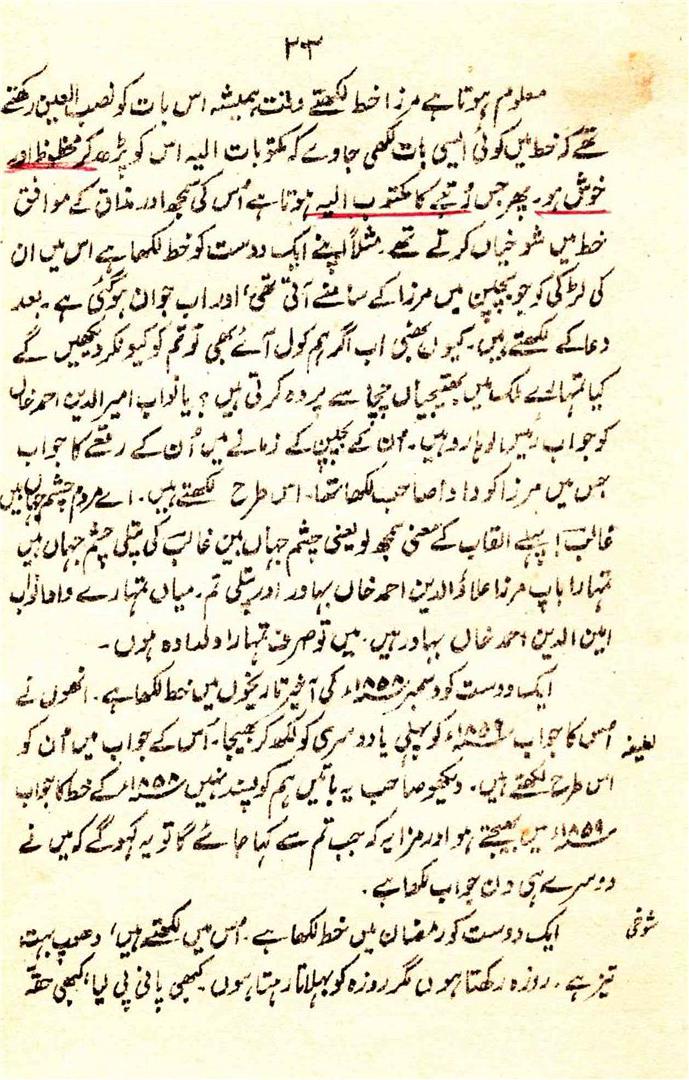 ۲۳
معلوم ہوتا ہے مرزا خط لکھتے وقت ہمیشہ اس بات کو نصب العین رکھتے
تھے کہ خط میں کوئی ایسی بات لکھی جاوے کہ مکتوبات الیہ اس کو پڑھ کر محظوظ اور
خوش ہو۔ پھر جس رُتبے کا مکتوب الیہ ہوتا ہے اُس کی سمجھ اور مذاق کے موافق
خط میں شوخیاں کرتے تھے۔ مثلاً اپنے ایک دوست کو خط لکھا ہے اس میں ان
کی لڑکی کو جو بچپن میں مرزا کے سامنے آتی تھی، اور اب جوان ہوگئی ہے۔ بعد
دعا کے لکھتے ہیں۔ کیوں بھئی اب اگر ہم کول آئے بھی تو تم کو کیونکر دیکھیں گے
کیا تمہارے ملک میں بھتیجیاں چچا سے پردہ کرتی ہیں؟ یا نواب امیر الدین احمد خاں
کو جو اب رئیس لوہارو ہیں۔ اُن کے بچپن کے زمانے میں اُن کے رقعے کا جواب
جس میں مرزا کو دادا صاحب لکھا تھا۔ اس طرح لکھتے ہیں۔ اے مردم چشم جہاں بیں
غالبؔ! پہلے القاب کے معنی سمجھ لو یعنی چشم جہاں بین غالبؔ کی پتلی چشم جہاں بیں
تمہارا باپ مرزا علاؤ الدین احمد خاں بہادر اور پتلی تم۔ میاں تمہارے دادا نواب
امین الدین احمد خاں بہادر ہیں۔ میں تو صرف تمہارا دلدادہ ہوں۔
ایک دوست کو دسمبر ۱۸۵۸ء کی آخیر تاریخوں میں خط لکھا ہے۔ انھوں نے
لطیفہ
اُس کا جواب ۱۸۵۹ء کو پہلی یا دوسری کو لکھ کر بھیجا۔ اُس کے جواب میں اُن کو
اس طرح لکھتے ہیں۔ دیکھو صاحب یہ باتیں ہم کو پسند نہیں ۱۸۵۸ء کے خط کا جواب
۱۸۵۹ء میں بھیجتے ہو اور مزا یہ کہ جب تم سے کہا جائے گا تو یہ کہو گے کہ میں نے
دوسرے ہی دن جواب لکھا ہے۔
شوخی
ایک دوست کو رمضان میں خط لکھا ہے۔ اُس میں لکھتے ہیں، دھوپ بہت
تیز ہے۔ روزہ رکھتا ہوں مگر روزہ کو بہلاتا رہتا ہوں۔ کبھی پانی پی لیا، کبھی حقہ